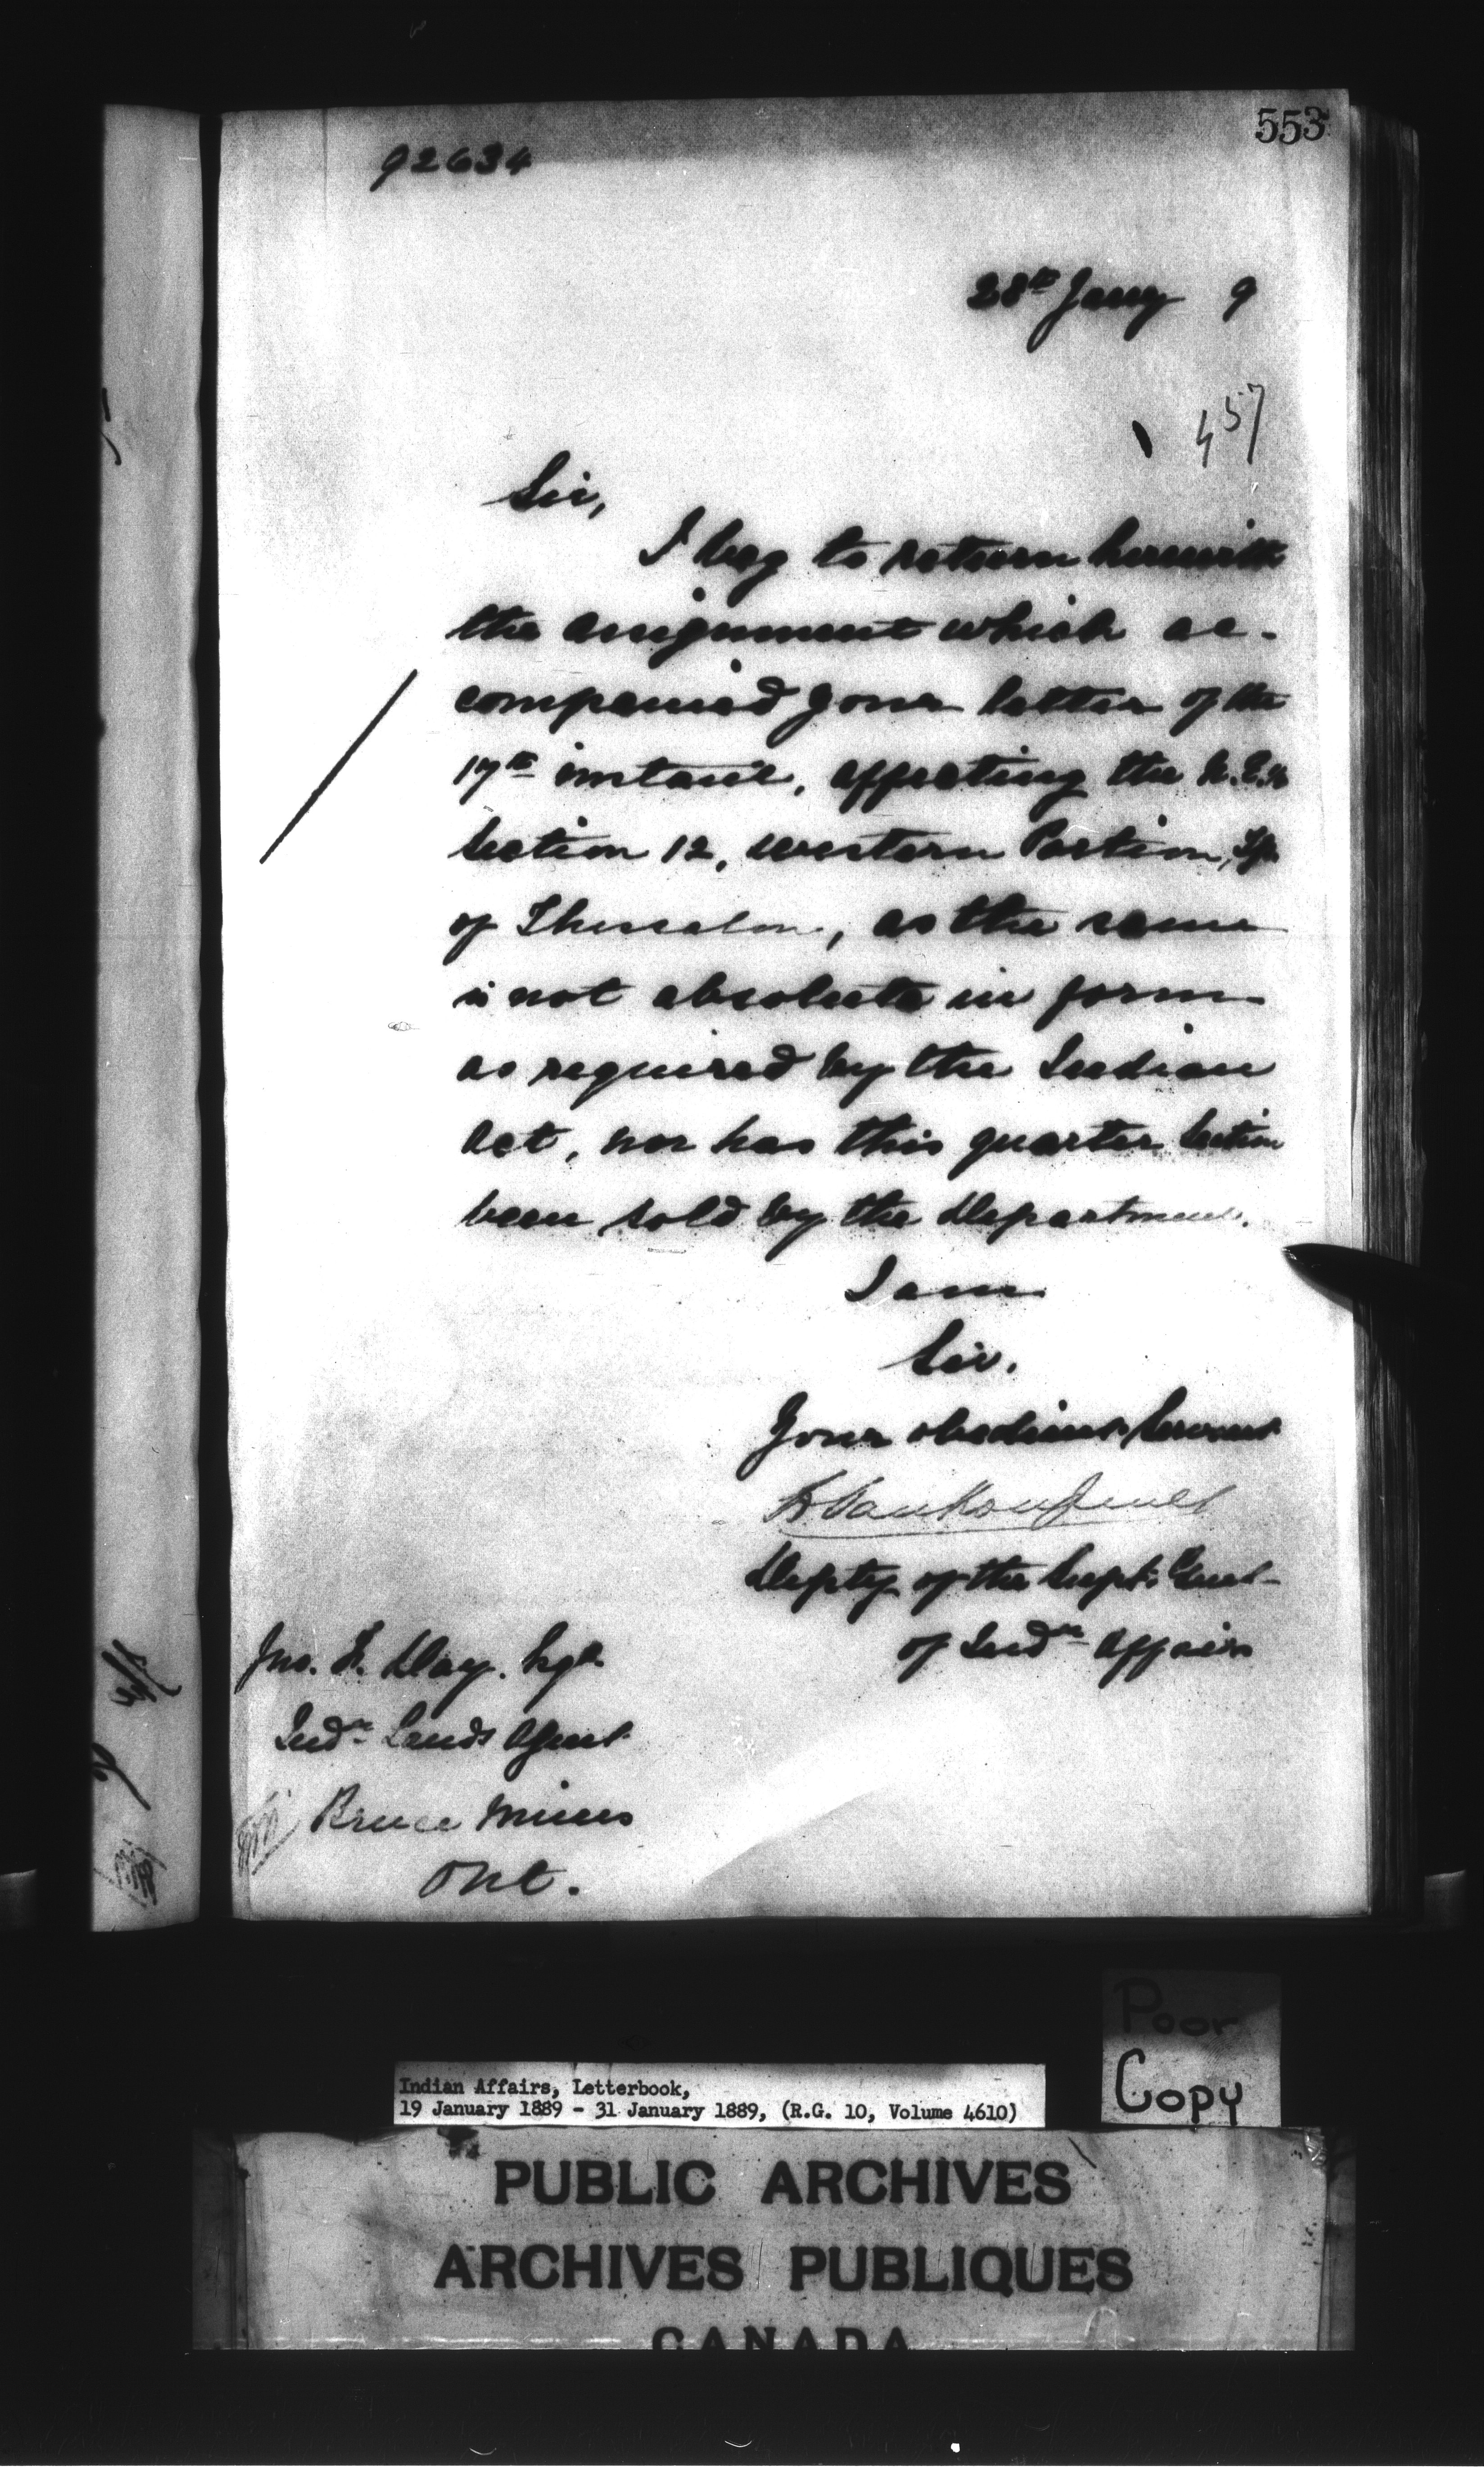 553
92634
28th Jany 9
457
Sir,
I beg to return herewith
the assignment which ac-
companied your letter of the
17th instant, affecting the N.E.¼
Section 12, Western Portion, Tp.
of Thessalon, as the same
is not absolute in form
as required by the Indian
Act, nor has this quarter Section
been sold by the Department.
I am
Sir.
Your obedient Servant
L. Vankoughnet
Depty of the Supt. Genl
of Indn Affairs
Jno. F. Day. Esqr.
Indn Lands Agent
Bruce Mines
Ont.
Poor
Copy
Indian Affairs, Letterbook,
19 January 1889 - 31 January 1889, (R.G. 10, Volume 4610)
PUBLIC ARCHIVES
ARCHIVES PUBLIQUES
CANADA